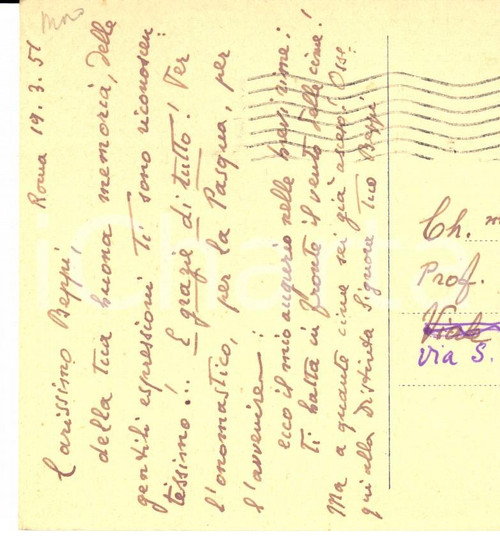 Roma 19.3.51
Carissimo Beppi,
della tua buona memoria, delle
gentili espressioni Ti sono riconoscen:
tissimo!.. E grazie di tutto! Per
l'onomastico, per la Pasqua, per
l'avvenire:
ecco il mio augurio nelle brevi rime:
Ti batta in fronte il vento delle cime!
Ma a quante cime sei già asceso! Osse:
qui alla Distinta Signora Tuo Beppi
Ch.
Prof.
Viale
via S.
iCharta